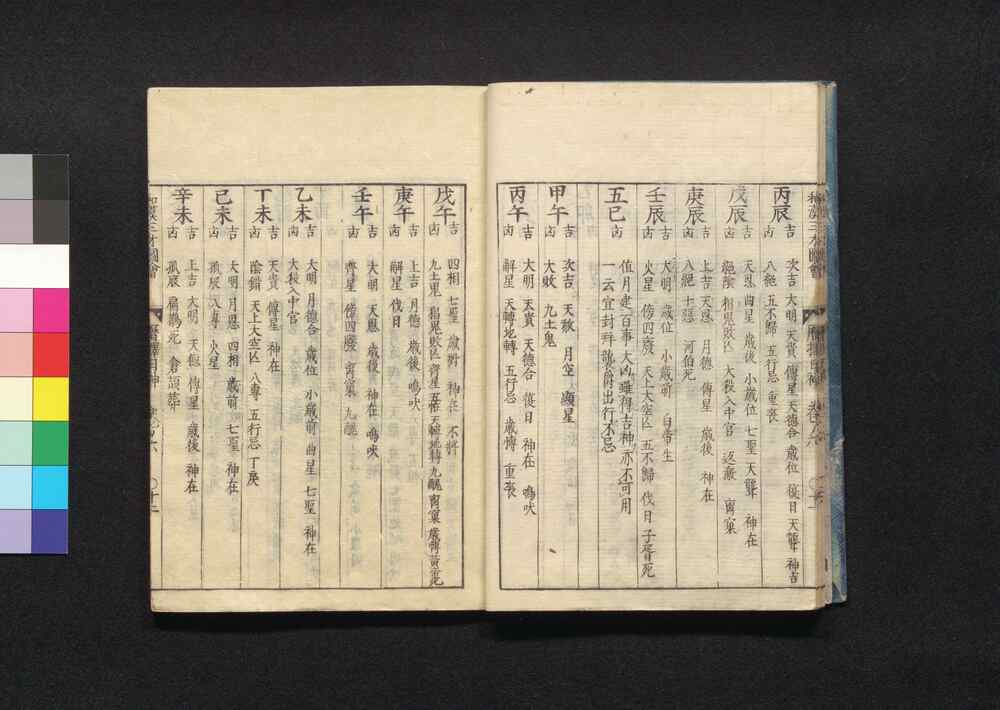 和漢三才圖會
丙辰
吉 次吉 大明 天貴 傳星 天德合 歲位 復日 天聾 神吉
凶 八絶 五不歸 五行忌 重喪
戊辰
吉 天恩 曲星 歲後 小歲位 七聖 天聾 神在
凶 絶陰 大殺入中宮
庚辰
吉 上吉 天恩 月德 傳星 歲後 神在
凶 八絶 十惡 河伯死
壬辰
吉 大明 歲位 小歲前
凶 火星 天上大空亡 五不歸 伐日 子胥死
五巳
值月建百事大凶雖得吉神亦不可用
一云宜封拜襲爵出行不忌
甲午
吉 次吉 天赦 月空 顯星
凶 大敗 九土鬼
丙午
吉 大明 天貴 天德合 復日 神在 鳴吠
凶 觧星 天轉地轉 五行忌 歲愽 重喪
戊午
吉 四相 七聖 歲對 神在 不將
凶 九土鬼
庚午
吉 上吉 月德 歲後 鳴吠
凶 觧星 伐日
壬午
吉 大明 天恩 歲後 神在 鳴吠
凶 九醜
乙未
吉 大明 月德合 歲位 小歲前 曲星 七聖 神在
凶 大殺入中宮
丁未
吉 天貴 傳星 神在
凶 陰錯 天上大空亡 八專 五行忌
己未
吉 大明 月恩 四相 歲前 七聖 神在
凶 孤辰 八專 火星
辛未
吉 上吉 大明 天恩 傳星 歲後 神在
凶 孤辰 扁鵲死 倉頡葬
和漢三才圖會
曆擇日神